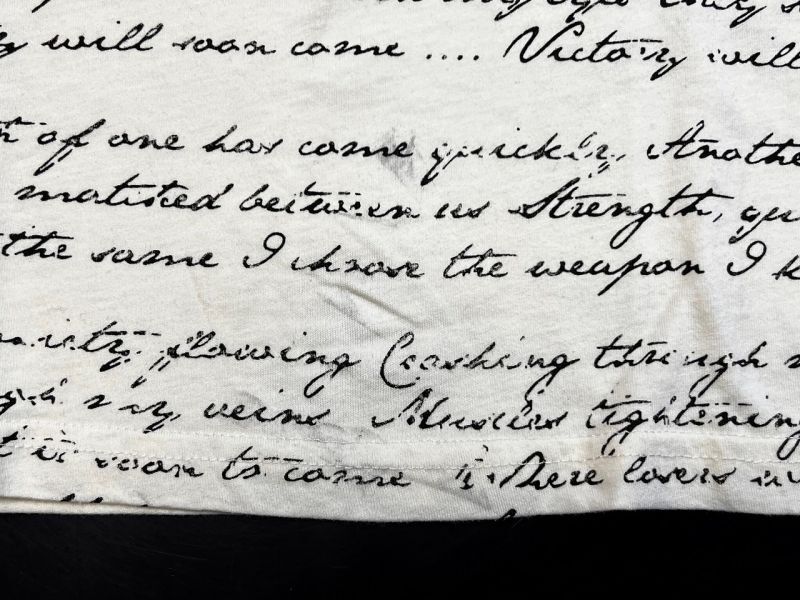 will soon come .... Victory will
of one has come quickly, Another
matched between us Strength,
the same I chose the weapon I
flowing Crashing through
my veins Muscles tightening
it is soon to come Where losers